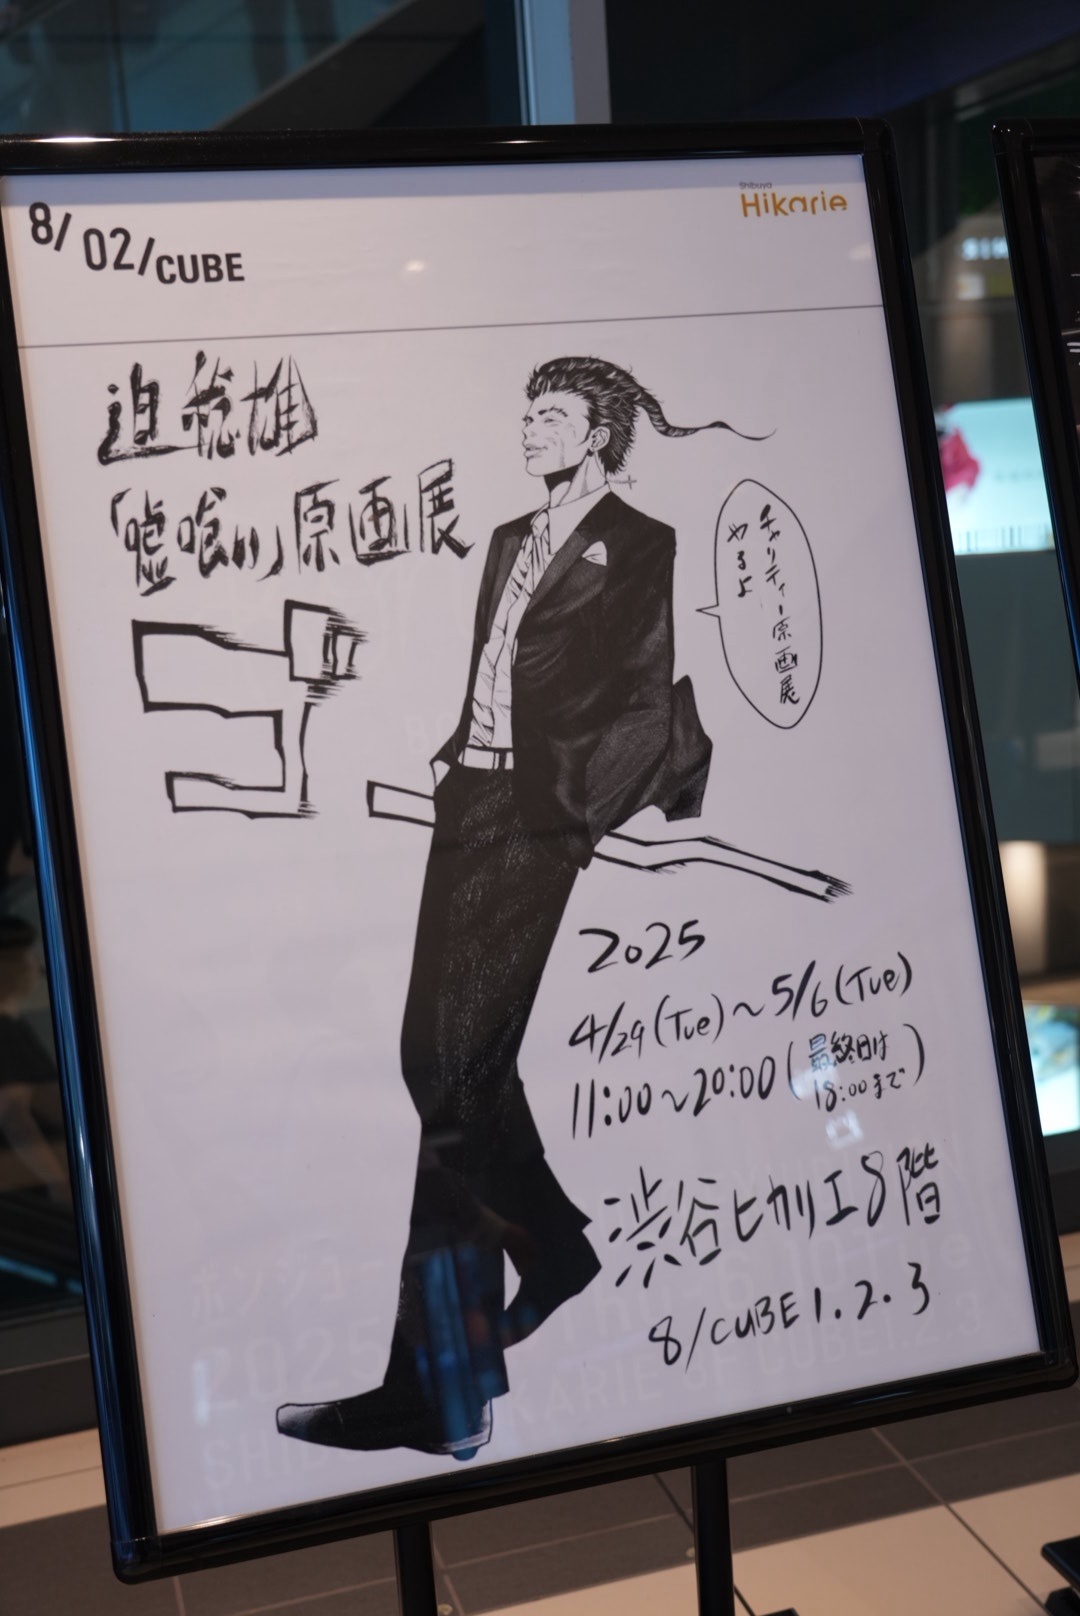 8/ 02/ CUBE
Shibuya
Hikarie
迫稔雄
「嘘喰い」原画展
チャリティー原画展
やるよ
2025
4/29 (Tue) ~ 5/6 (Tue)
11:00~20:00 (最終日は
18:00まで)
渋谷ヒカリエ8階
8/CUBE 1.2.3